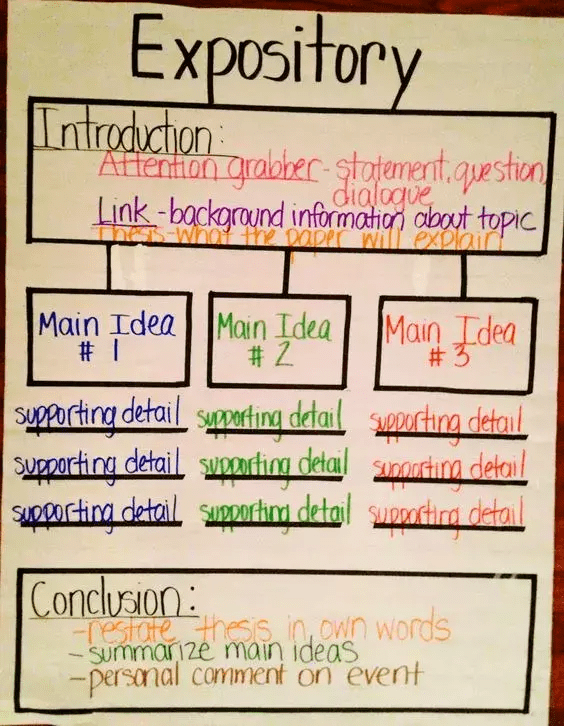 Expository
Introduction:
Attention grabber - statement, question,
dialogue
Link - background information about topic
Thesis - what the paper will explain
Main Idea
# 1
Main Idea
# 2
Main Idea
# 3
supporting detail supporting detail supporting detail
supporting detail supporting detail supporting detail
supporting detail supporting detail supporting detail
Conclusion:
- restate thesis in own words
- summarize main ideas
- personal comment on event